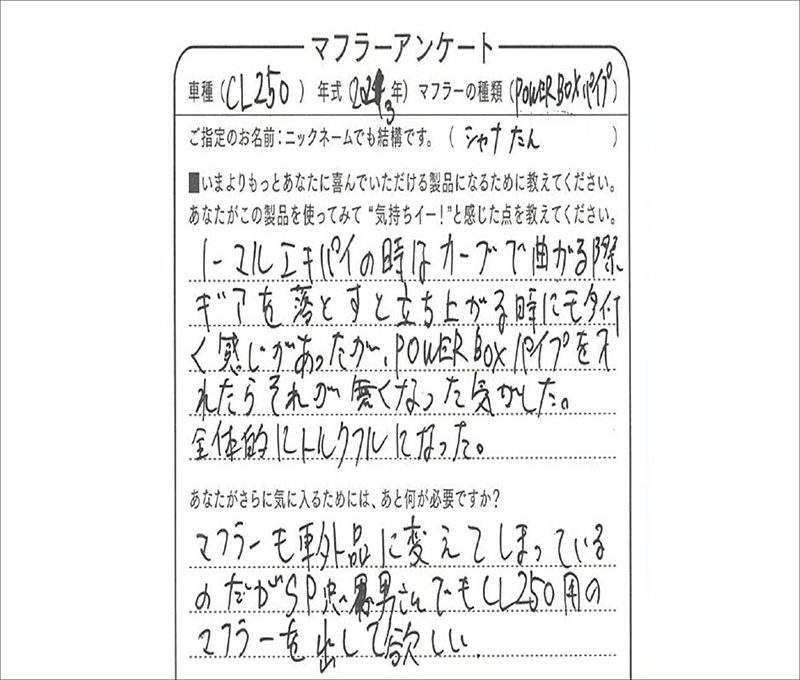 マフラーアンケート
車種(CL250) 年式(2023年) マフラーの種類(POWERBOXパイプ)
ご指定のお名前:ニックネームでも結構です。( シャナたん )
■いまよりもっとあなたに喜んでいただける製品になるために教えてください。
あなたがこの製品を使ってみて“気持ちイー!”と感じた点を教えてください。
ノーマルエキパイの時はカーブで曲がる際
ギアを落とすと立ち上がる時にモタ付
く感じがあったが、POWER BOXパイプを入
れたらそれが無くなった気がした。
全体的にトルクフルになった。
あなたがさらに気に入るためには、あと何が必要ですか?
マフラーも車外品に変えてしまっている
のだがSP忠男さんでもCL250用の
マフラーを出して欲しい.